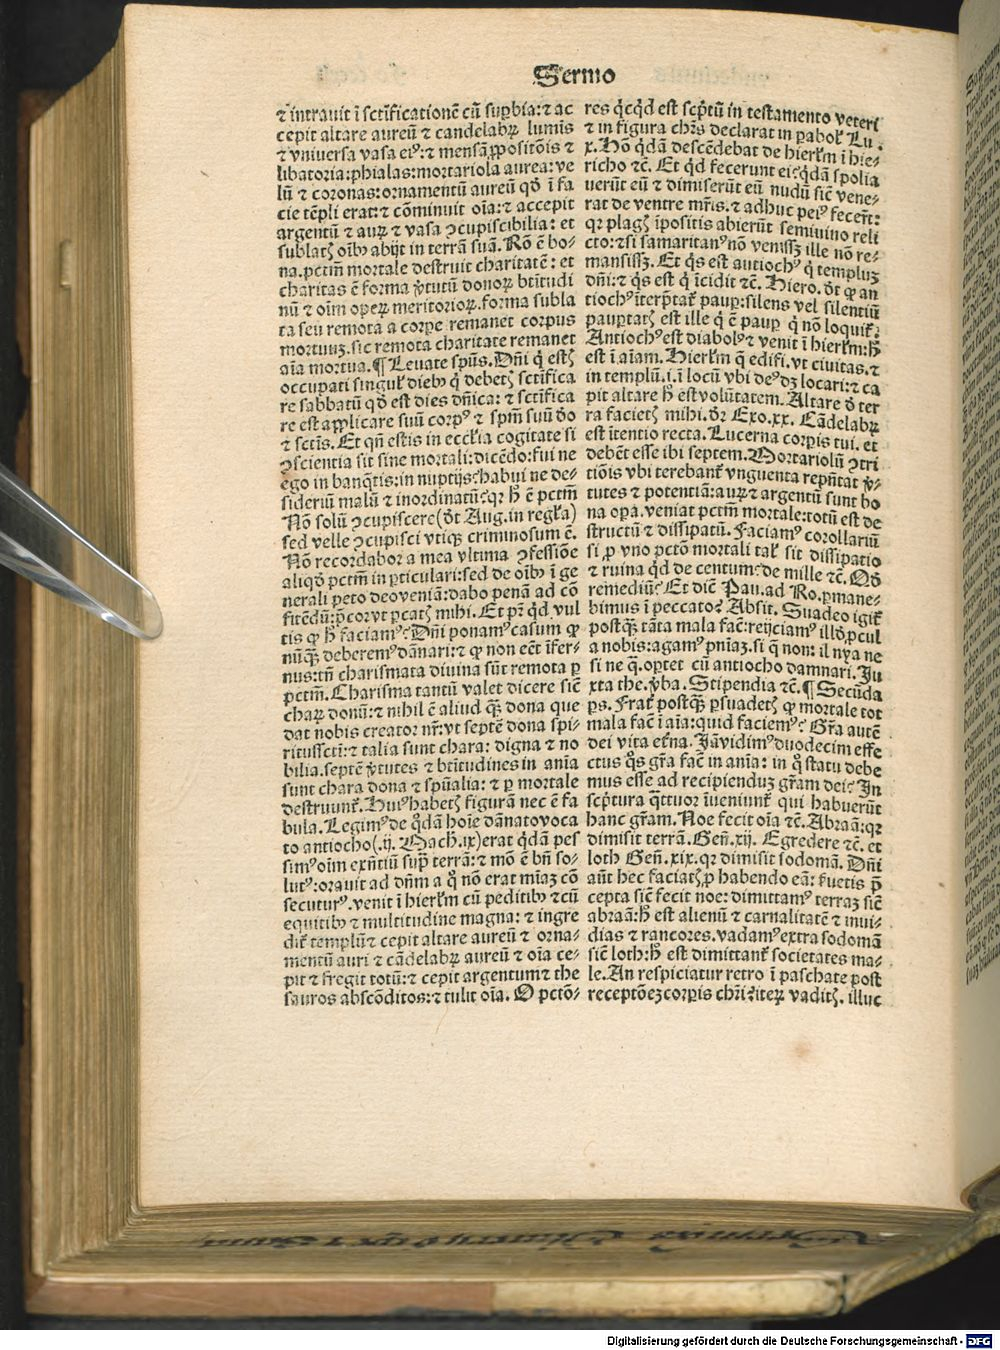 Sermo
⁊ intrauit ī sctīficationē cū suꝑbia: ⁊ ac
cepit altare aureū ⁊ candelabꝝ lumis
⁊ vniuersa vasa eiꝰ: ⁊ mensā ꝓpositōis ⁊
libatoria: phialas: mortariola aurea: ve
lū ⁊ coronas: ornamentū aureū qď ī fa
cie tēpli erat: ⁊ cōminuit oīa: ⁊ accepit
argentū ⁊ auꝝ ⁊ vasa ꝯcupiscibilia: et
sublatꝭ oībꝰ abijt in terrā suā. Rō ē bo-
na. pctm̄ mortale destruit charitatē: et
charitas ē forma v̓tutū donoꝝ btītudi
nū ⁊ oīm opeꝝ meritorioꝝ. forma subla
ta seu remota a corpe remanet corpus
mortuuꝫ. sic remota charitate remanet
aīa mortua. ¶ Leuate spūs. Dn̄i q̇ estꝭ
occupati singuł diebꝰ q̇ debetꝭ sctīfica
re sabbatū qď est dies dn̄ica: ⁊ sctīfica
re est applicare suū corpꝰ ⁊ spm̄ suū ďo
⁊ sctīs. Et qn̄ estis in eccłia cogitate si
ꝯscientia sit sine mortali: dicēdo: fui ne
ego in banq̄tis: in nuptijs: habui ne de-
sideriū malū ⁊ inordinatū: qr h̄ ē pctm̄
Nō solū ꝯcupiscere (ďt Aug. in regła)
sed velle ꝯcupisci vtiqꝫ criminosum ē.
Nō recordabor a mea vltima ꝯfessiōe
aliqď pctm̄ in ꝑticulari: sed de oībꝰ ī ge
nerali peto deoveniā: dabo penā ad cō
fitēdū: p̄cor vt ꝑcatꝭ mihi. Et pꝫ qd vul
tis ꝙ h̄ faciamꝰ: Dn̄i ponamꝰ casum ꝙ
nūqꝫ deberemꝰ dānari: ⁊ ꝙ non eēt īfer-
nus: tn̄ charismata diuina sūt remota ꝑ
pctm̄. Charisma tantū valet dicere sic̄
chaꝝ donū: ⁊ nihil ē aliud qꝫ dona que
dat nobis creator nr̄: vt septē dona spi-
ritussctī: ⁊ talia sunt chara: digna ⁊ no
bilia. septē v̓tutes ⁊ btītudines in anīa
sunt chara dona ⁊ spūalia: ⁊ ꝑ mortale
destruunt̄. Huiꝰ habetꝭ figurā nec ē fa
bula. Legimꝰ de qdā hoīe dānato voca
to antiocho (.ij. Mach. ix) erat qdā pes
simꝰ oīm exn̄tiū suꝑ terrā: ⁊ mō ē bn̄ so-
lutꝰ: orauit ad dn̄m a quo nō erat mīaꝫ cō
secuturꝰ. venit ī hierłm cū peditibꝰ ⁊ cū
equitibꝰ ⁊ multitudine magna: ⁊ ingre
dit̄ templū ⁊ cepit altare aureū ⁊ orna-
mentū auri ⁊ cādelabꝝ aureū ⁊ oīa ce-
pit ⁊ fregit totū: ⁊ cepit argentum ⁊ the
sauros abscōditos: ⁊ tulit oīa. O pctō-
res qcqd est scptū in testamento veteri
⁊ in figura chrs declarat in ꝑaboł Lu.
x. Hō qdā descēdebat de hierłm ī hie-
richo ⁊c̄. Et qd fecerunt ei: qdā spolia
uerūt eū ⁊ dimiserūt eū nudū sic̄ vene-
rat de ventre mr̄is. ⁊ adhuc peiꝰ fecert̄:
qr plagꝭ īpositis abierūt semiuiuo reli
cto: ⁊ si samaritanꝰ nō venissꝫ ille nō re-
mansissꝫ. Et qs est antiochꝰ q̇ templuꝫ
dn̄i: ⁊ qs est q̇ īcidit ⁊c̄. Hiero. ďt ꝙ an
tiochꝰ īterp̄tat̄ pauꝑ: silens vel silentiū
pauꝑtatꝭ est ille q̇ ē pauꝑ q̇ nō loquit̄.
Antiochꝰ est diabolꝰ ⁊ venit ī hierłm: h̄
est ī aīam. Hierłm q̄ edifi. vt ciuitas. ⁊
in templū. i. ī locū vbi deꝰ dꝫ locari: ⁊ ca
pit altare h̄ est volūtatem. Altare ď ter
ra facietꝭ mihi. ďr Exo. xx. Cādelabꝝ
est ītentio recta. Lucerna corꝑis tui. et
debēt esse ibi septem. Mortariolū ꝯtri
tiōis vbi terebant̄ vnguenta repn̄tat v̓-
tutes ⁊ potentiā: auꝝ ⁊ argentū sunt bo
na oꝑa. veniat pctm̄ mortale: totū est de
structū ⁊ dissipatū. Faciamꝰ corollariū
si ꝑ vno pctō mortali tał sit dissipatio
⁊ ruina qd de centum: de mille ⁊c̄. Qď
remediū: Et dic̄ Pau. ad Ro. ꝑmane-
bimus ī peccato: Absit. Suadeo igit̄
postqꝫ tāta mala fac̄: reijciamꝰ illď ꝓcul
a nobis: agamꝰ pn̄iaꝫ. si q̄ non: il nya ne
si ne q̄. oꝑtet cū antiocho damnari. Ju
xta the. v̓ba. Stipendia ⁊c̄. ¶ Secūda
ꝑs. Frat̄ postqꝫ ꝑsuadetꝭ ꝙ mortale tot
mala fac̄ ī aīa: quid faciemꝰ: Gr̄a autē
dei vita et̄na. Jā vidimꝰ duodecim effe
ctus qs gr̄a fac̄ in anīa: in q̇ statu debe
mus esse ad recipienduꝫ gr̄am dei: In
scptura q̄ttuor īueniunt̄ qui habuerūt
hanc gr̄am. Noe fecit oīa ⁊c̄. Abraā: qr
dimisit terrā. Gen̄. xij. Egredere ⁊c̄. et
loth Gen̄. xix. qr dimisit sodomā. Dn̄i
aūt hec faciatꝭ ꝓ habendo eā: seruetis p̄
cepta sic̄ fecit noe: dimittamꝰ terraꝫ sic̄
abraā: h̄ est alienū ⁊ carnalitatē ⁊ inui-
dias ⁊ rancores. vadamꝰ extra sodomā
sic̄ loth: h̄ est dimittant̄ societates ma-
le. An respiciatur retro ī paschate post
receptōeꝫ corꝑis chrī: iteꝝ vaditꝭ. illuc
Digitalisierung gefördert durch die Deutsche Forschungsgemeinschaft - DFG